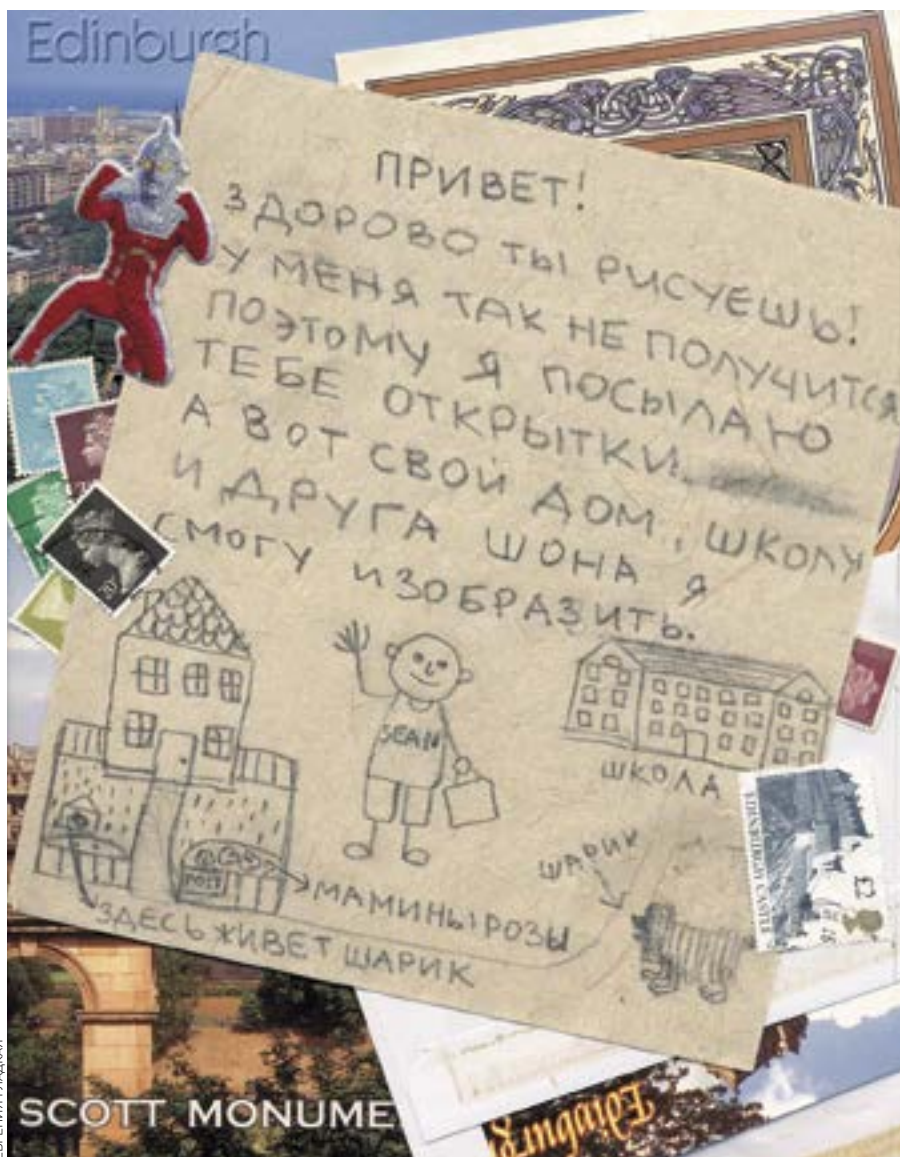 Edinburgh
ПРИВЕТ!
ЗДОРОВО ТЫ РИСУЕШЬ!
У МЕНЯ ТАК НЕ ПОЛУЧИТСЯ
ПОЭТОМУ Я ПОСЫЛАЮ
ТЕБЕ ОТКРЫТКИ.
А ВОТ СВОЙ ДОМ, ШКОЛУ
И ДРУГА ШОНА Я
СМОГУ ИЗОБРАЗИТЬ.
SEAN
ШКОЛА
POST
МАМИНЫ РОЗЫ
ШАРИК
ЗДЕСЬ ЖИВЕТ ШАРИК
EDINBURGH CASTLE
£2
SCOTT MONUME
Edinburg